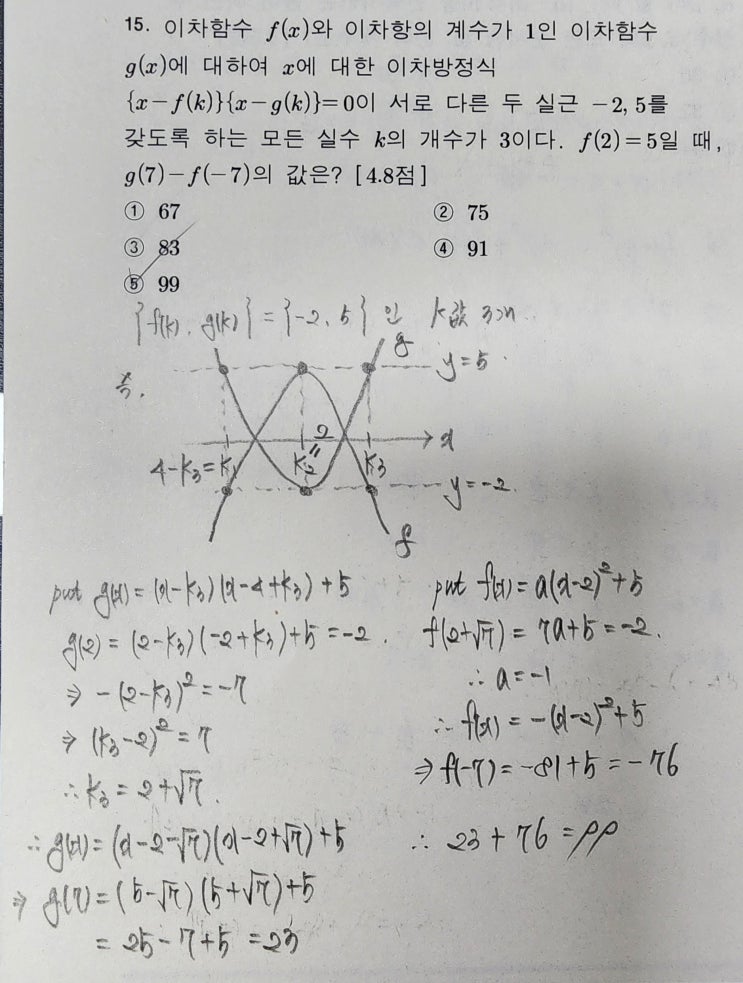 15. 이차함수 f(x)와 이차항의 계수가 1인 이차함수
g(x)에 대하여 x에 대한 이차방정식
{x-f(k)}{x-g(k)}=0이 서로 다른 두 실근 -2, 5를
갖도록 하는 모든 실수 k의 개수가 3이다. f(2)=5일 때,
g(7)-f(-7)의 값은? [4.8점]
① 67 ② 75
③ 83 ④ 91
⑤ 99
{f(k), g(k)} = {-2, 5} 인 k값 3개.
즉,
g
y=5
2
x
4-k₃=k₁ k₂ k₃
y=-2
f
put g(x) = (x-k₃)(x-4+k₃)+5
g(2) = (2-k₃)(-2+k₃)+5 = -2.
⇒ -(2-k₃)² = -7
⇒ (k₃-2)² = 7
∴ k₃ = 2+√7.
∴ g(x) = (x-2-√7)(x-2+√7)+5
⇒ g(7) = (5-√7)(5+√7)+5
= 25-7+5 = 23
put f(x) = a(x-2)²+5
f(2+√7) = 7a+5 = -2.
∴ a = -1
∴ f(x) = -(x-2)²+5
⇒ f(-7) = -81+5 = -76
∴ 23+76 = 99